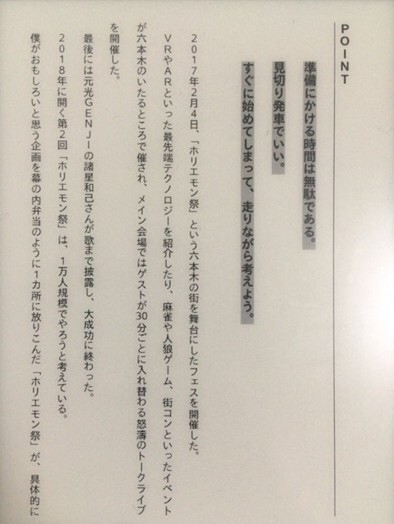 POINT
準備にかける時間は無駄である。
見切り発車でいい。
すぐに始めてしまって、走りながら考えよう。
2017年2月4日、「ホリエモン祭」という六本木の街を舞台にしたフェスを開催した。
VRやARといった最先端テクノロジーを紹介したり、麻雀や人狼ゲーム、街コンといったイベント
が六本木のいたるところで催され、メイン会場ではゲストが30分ごとに入れ替わる怒濤のトークライブ
を開催した。
最後には元光GENJIの諸星和己さんが歌まで披露し、大成功に終わった。
2018年に開く第2回「ホリエモン祭」は、1万人規模でやろうと考えている。
僕がおもしろいと思う企画を幕の内弁当のように1カ所に放りこんだ「ホリエモン祭」が、具体的に